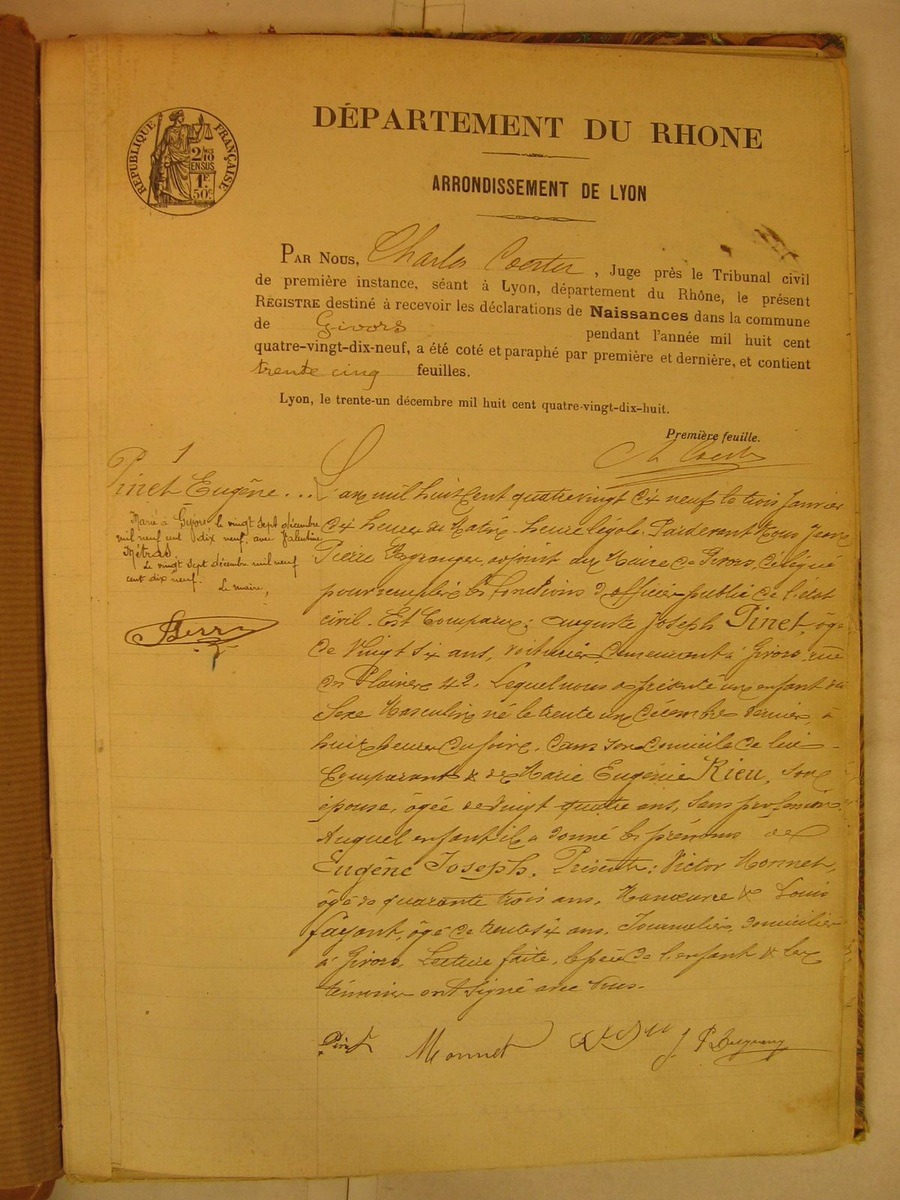 DÉPARTEMENT DU RHONE
RÉPUBLIQUE FRANÇAISE
2/10 EN SUS
1F 50c
ARRONDISSEMENT DE LYON
PAR NOUS, Charles Coester, Juge près le Tribunal civil
de première instance, séant à Lyon, département du Rhône, le présent
REGISTRE destiné à recevoir les déclarations de Naissances dans la commune
de Givors pendant l'année mil huit cent
quatre-vingt-dix-neuf, a été coté et paraphé par première et dernière, et contient
trente cinq feuilles.
Lyon, le trente-un décembre mil huit cent quatre-vingt-dix-huit.
Première feuille.
1
Pinet Eugène
Marié à Givors le vingt sept décembre
mil neuf cent dix neuf avec Valentine
Métras
Le vingt sept décembre mil neuf
cent dix neuf.
Le maire,
L'an mil huit cent quatre vingt dix neuf le trois Janvier
dix heures du Matin heure légale. Pardevant Nous Jean
Pierre adjoint au Maire de Givors, délégué
pour remplir les fonctions d'officier public de l'état
civil. Est Comparu: Auguste Joseph Pinet, âgé
de Vingt six ans, voiturier, demeurant à Givors, rue
42. Lequel nous a présenté un enfant du
Sexe Masculin né le trente un décembre dernier, à
huit heures du soir, dans son domicile de lui
Comparant & de Marie Eugénie Rieu, son
épouse, âgée de vingt quatre ans, sans profession
Auquel enfant il a donné les prénoms de
Eugène Joseph. Présents: Victor Monnet,
âgé de quarante trois ans, Manœuvre & Louis
fayant, âgé de trente six ans, Journalier, domiciliés
à Givors, Lecture faite, le père de l'enfant & les
témoins ont signé avec Nous.
Pinet Monnet